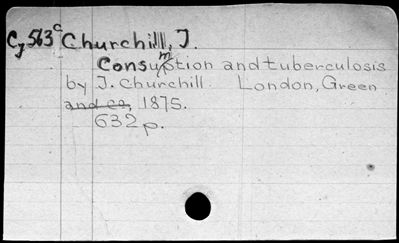 Cy 563 c Churchill, J.
Consumption and tuberculosis
by J. Churchill. London, Green
and co, 1875.
632 p.